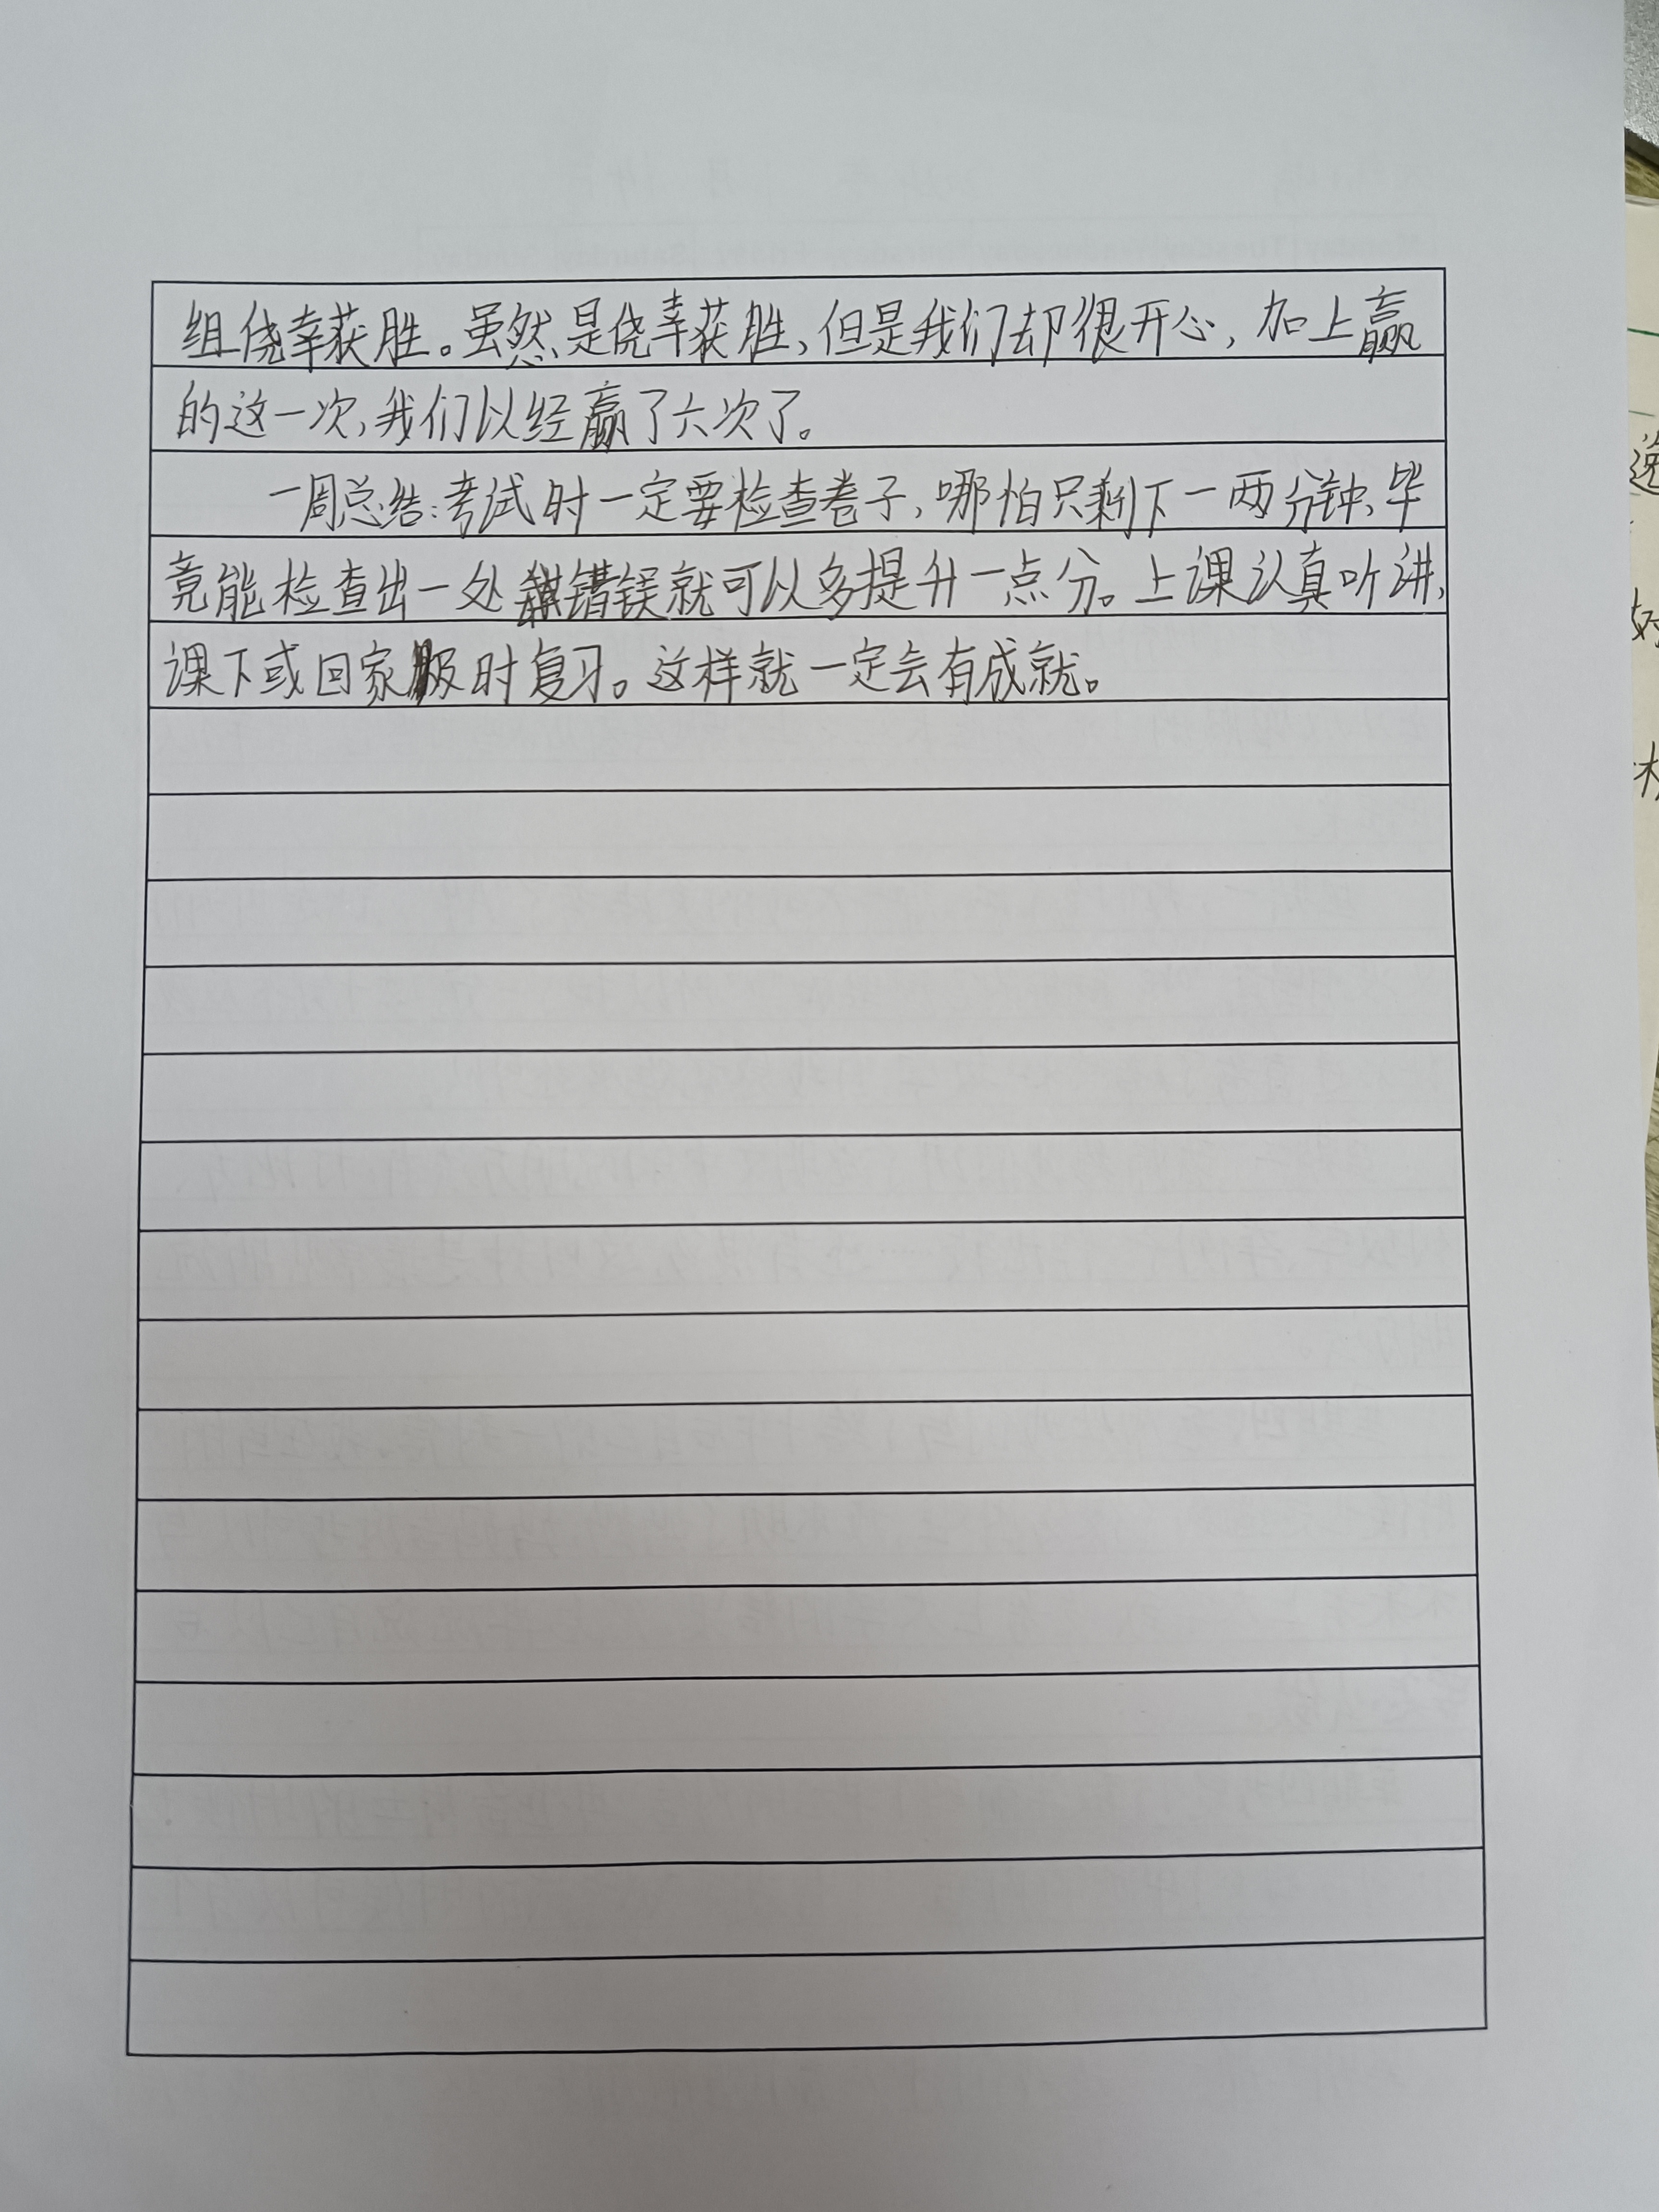 组侥幸获胜。虽然是侥幸获胜,但是我们却很开心,加上赢
的这一次,我们以经赢了六次了。
一周总结:考试时一定要检查卷子,哪怕只剩下一两分钟,毕
竟能检查出一处错误就可以多提升一点分。上课认真听讲,
课下或回家及时复习。这样就一定会有成就。